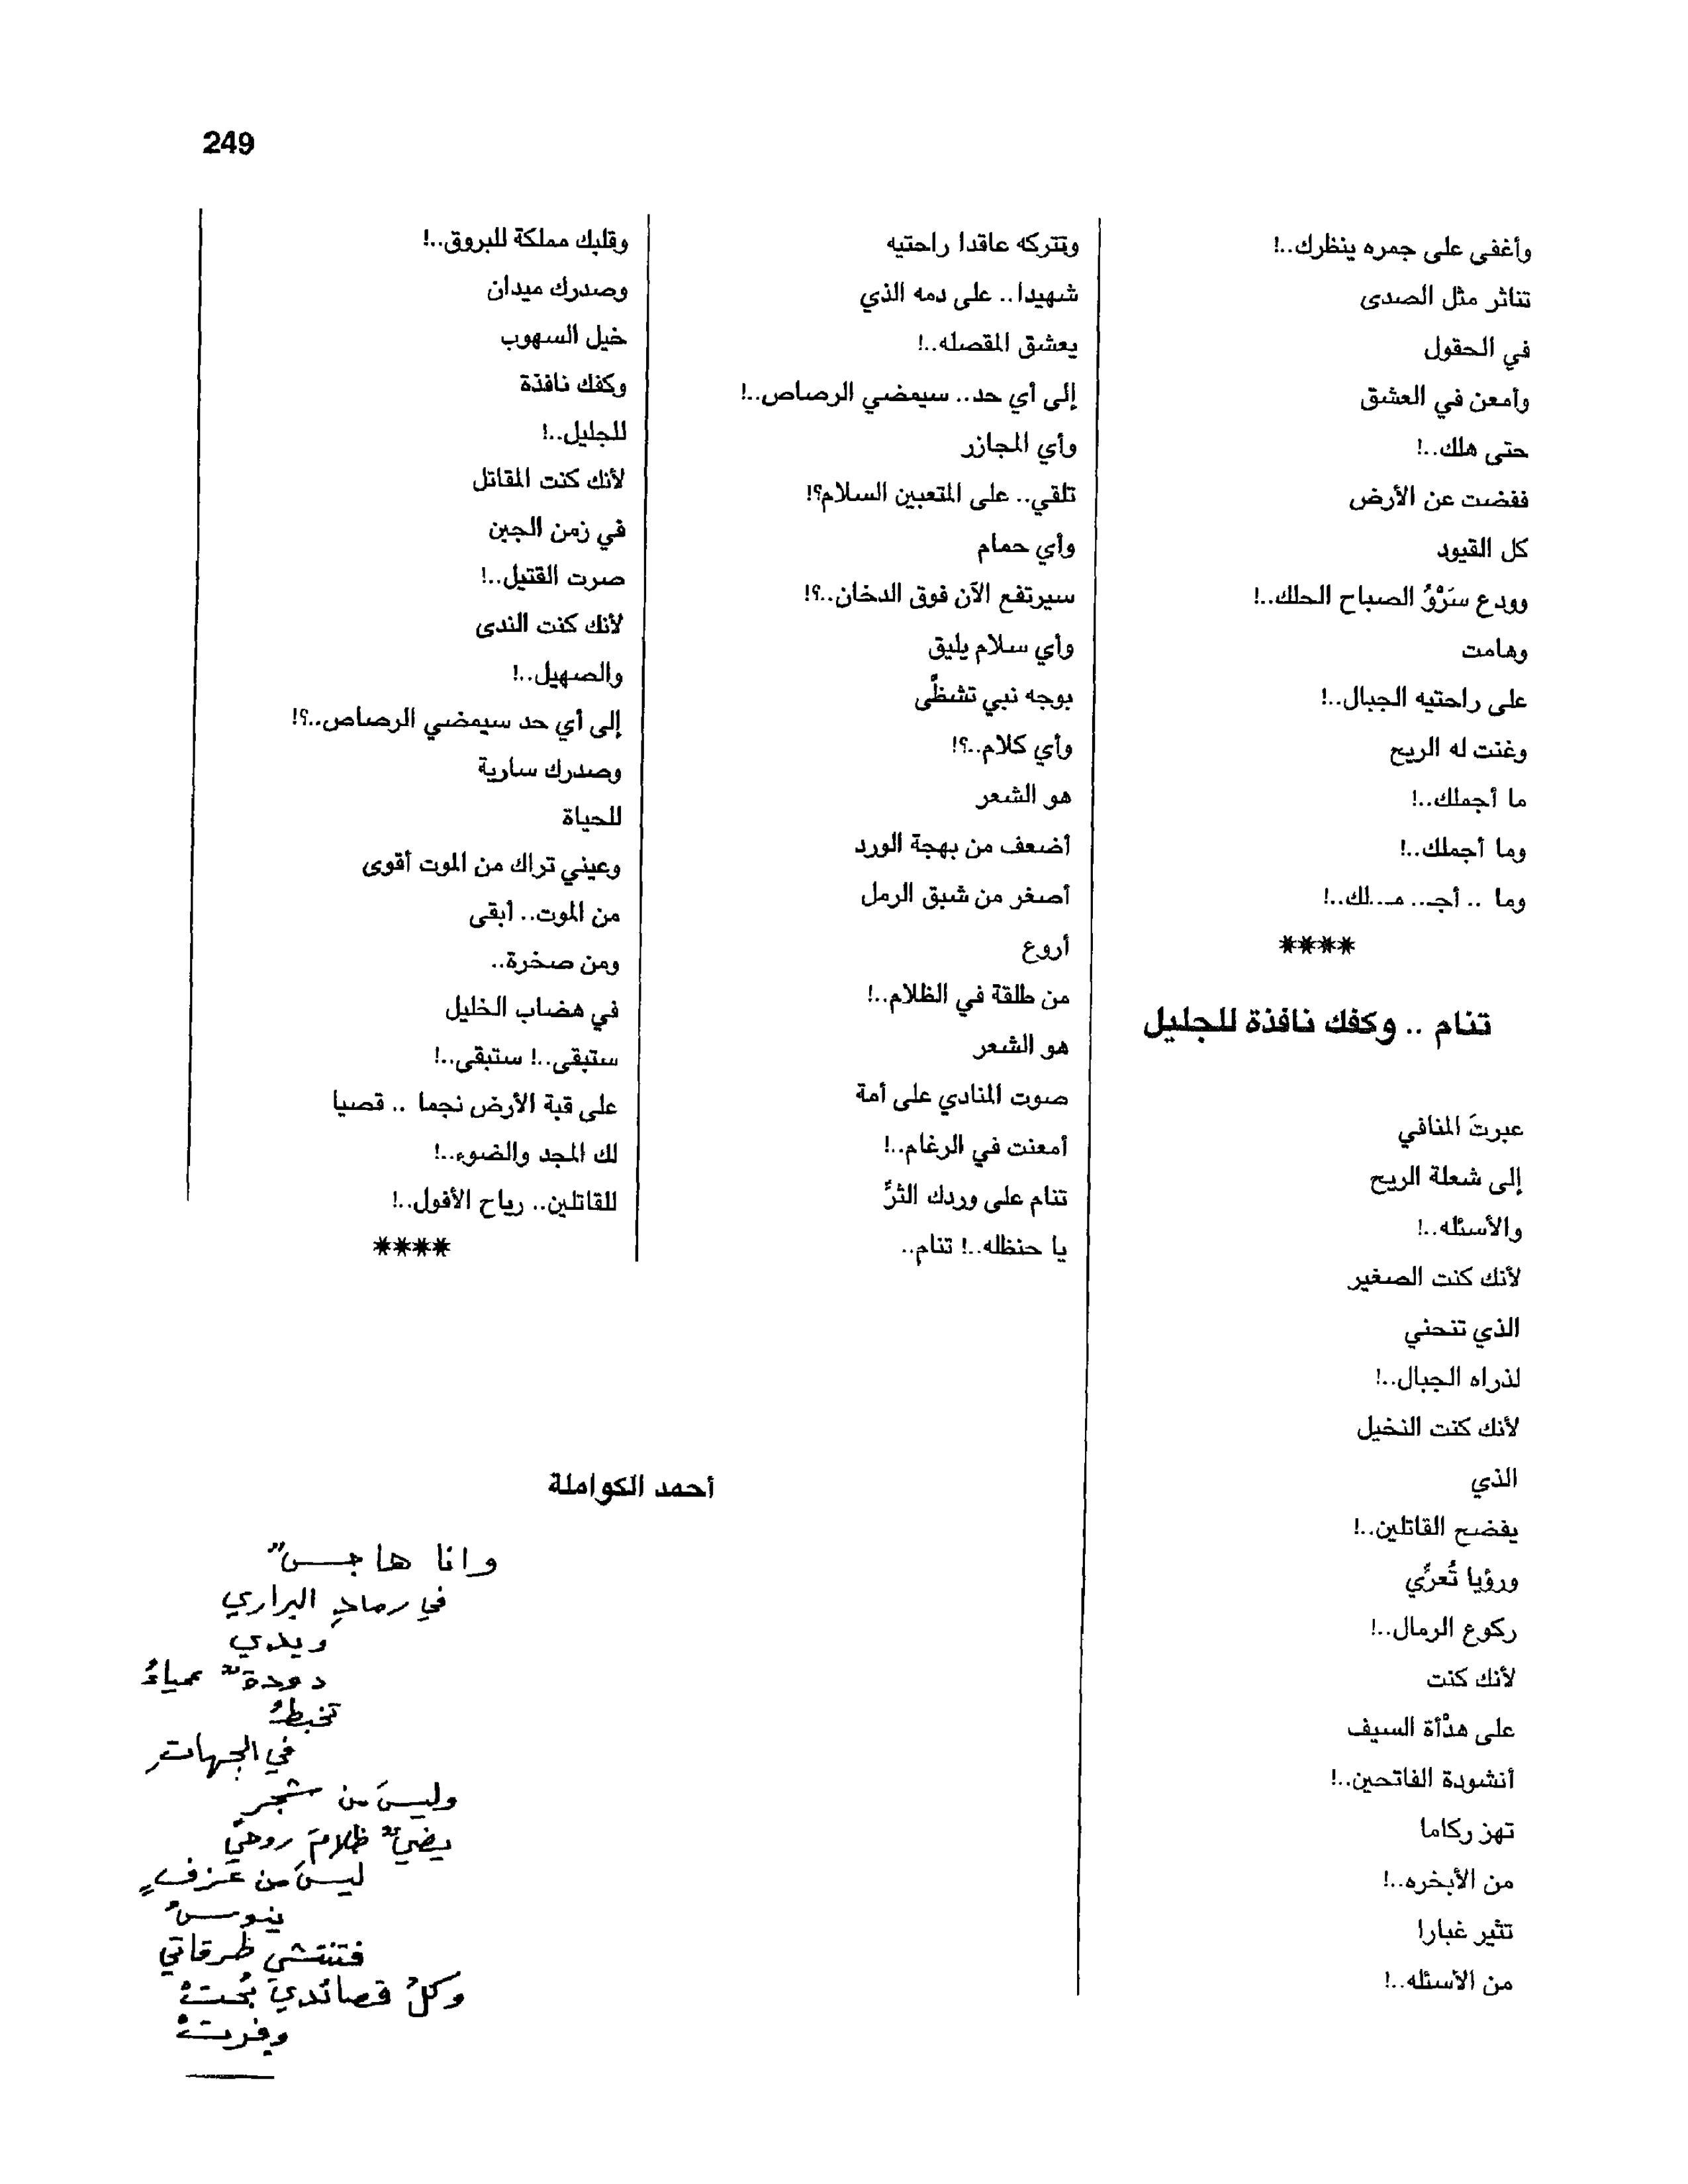 249
وأغفى على جمره ينظرك..!
تناثر مثل الصدى
في الحقول
وأمعن في العشق
حتى هلك..!
ففضت عن الأرض
كل القيود
وودع سَرْوُ الصباح الحلك..!
وهامت
على راحتيه الجبال..!
وغنت له الريح
ما أجملك..!
وما أجملك..!
وما .. أجـ.. مـ..لك..!
****
تنام .. وكفك نافذة للجليل
عبرتَ المنافي
إلى شعلة الريح
والأسئله..!
لأنك كنت الصغير
الذي تنحني
لذراه الجبال..!
لأنك كنت النخيل
الذي
يفضح القاتلين..!
ورؤيا تُعرِّي
ركوع الرمال..!
لأنك كنت
على هدْأة السيف
أنشودة الفاتحين..!
تهز ركاما
من الأبخره..!
تثير غبارا
من الأسئله..!
وتتركه عاقدا راحتيه
شهيدا.. على دمه الذي
يعشق المقصله..!
إلى أي حد.. سيمضي الرصاص..!
وأي المجازر
تلقي.. على المتعبين السلام؟!
وأي حمام
سيرتفع الآن فوق الدخان..؟!
وأي سلام يليق
بوجه نبي تشظَّى
وأي كلام..؟!
هو الشعر
أضعف من بهجة الورد
أصغر من شبق الرمل
أروع
من طلقة في الظلام..!
هو الشعر
صوت المنادي على أمة
أمعنت في الرغام..!
تنام على وردك الثرِّ
يا حنظله..! تنام..
وقلبك مملكة للبروق..!
وصدرك ميدان
خيل السهوب
وكفك نافذة
للجليل..!
لأنك كنت المقاتل
في زمن الجبن
صرت القتيل..!
لأنك كنت الندى
والصهيل..!
إلى أي حد سيمضي الرصاص..؟!
وصدرك سارية
للحياة
وعيني تراك من الموت أقوى
من الموت.. أبقى
ومن صخرة..
في هضاب الخليل
ستبقى..! ستبقى..!
على قبة الأرض نجما .. قصيا
لك المجد والضوء..!
للقاتلين.. رياح الأفول..!
****
أحمد الكواملة
وانا هاجسٌ
في رمادِ البراري
ويدي
دودةٌ عمياءُ
تخبطُ
في الجهاتِ
وليسَ من شجرٍ
يضيءُ ظلامَ روحي
ليسَ من عزفٍ
ينوسُ
فتنتشي طرقاتي
وكلُّ قصائدي بُحتْ
وفرتْ